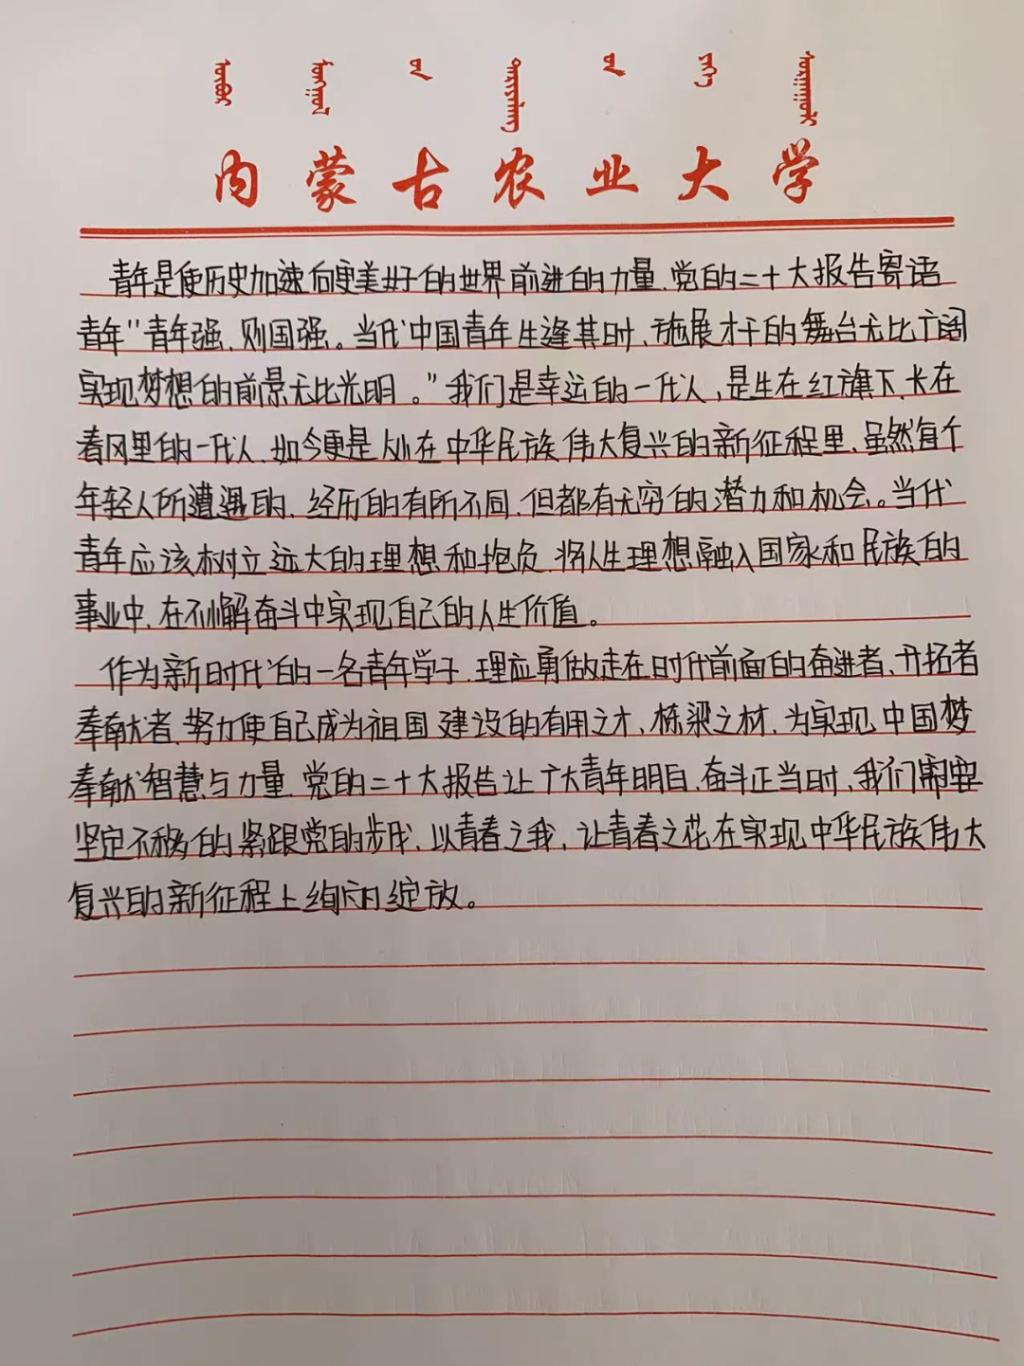 内蒙古农业大学
青年是使历史加速向更美好的世界前进的力量.党的二十大报告寄语
青年"青年强、则国强。当代中国青年生逢其时、施展才干的舞台无比广阔
实现梦想的前景无比光明。"我们是幸运的一代人,是生在红旗下、长在
春风里的一代人.如今更是从在中华民族伟大复兴的新征程里、虽然每个
年轻人所遭遇的、经历的有所不同、但都有无穷的潜力和机会。当代
青年应该树立远大的理想和抱负.将人生理想融入国家和民族的
事业中.在不懈奋斗中实现自己的人生价值。
作为新时代的一名青年学子.理应勇做走在时代前面的奋进者、开拓者
奉献者.努力使自己成为祖国建设的有用之才、栋梁之材.为实现中国梦
奉献智慧与力量.党的二十大报告让广大青年明白.奋斗正当时、我们需要
坚定不移的紧跟党的步伐.以青春之我、让青春之花在实现中华民族伟大
复兴的新征程上绚烂绽放。